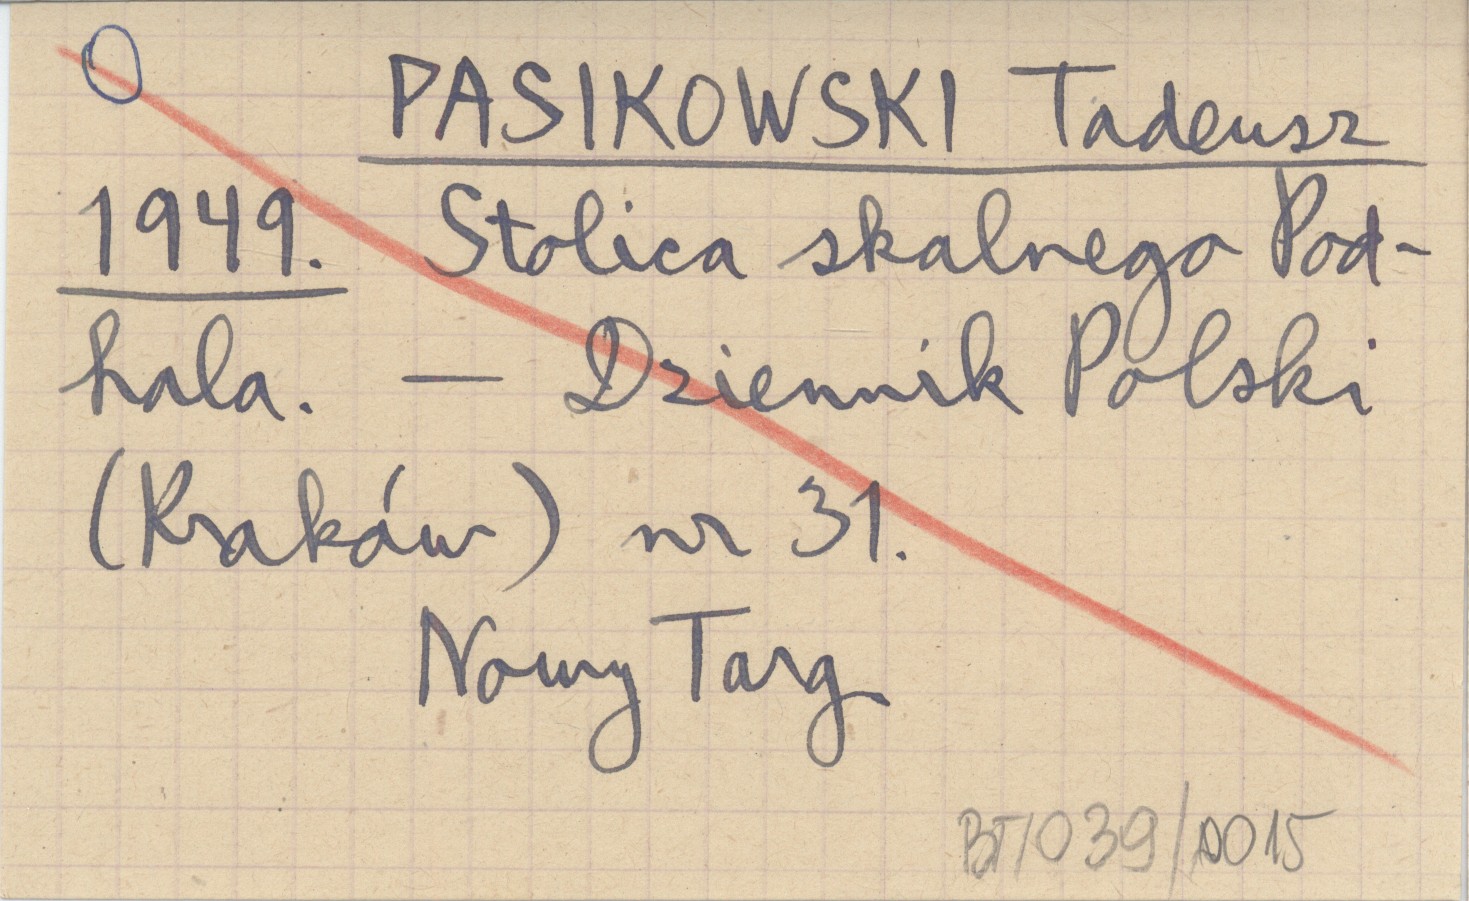 PASIKOWSKI Tadeusz
1949. Stolica skalnego Pod-
hala. — Dziennik Polski
(Kraków) nr 31.
Nowy Targ
BT/039/0015